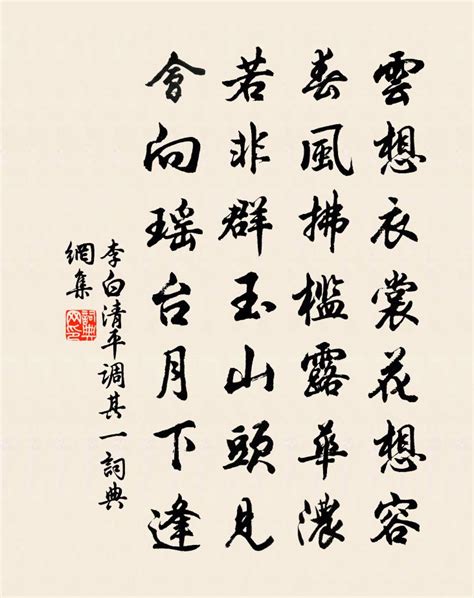 雲想衣裳花想容
春風拂檻露華濃
若非群玉山頭見
會向瑤台月下逢
李白清平调其一詞典
網集
詞典
网印